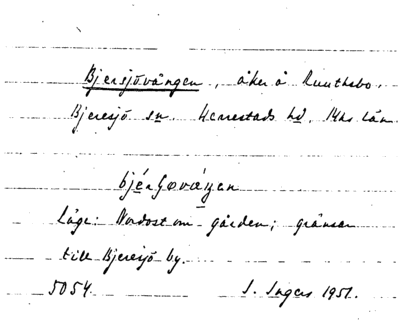 Bjersjövången, åker å Ruuthsbo.
Bjeresjö sn. Herrestads hd. Mhs län
bjérʃøvåŋen
Läge: Nordost om gården; gränsar
till Bjeresjö by.
5054. I. Ingers 1951.